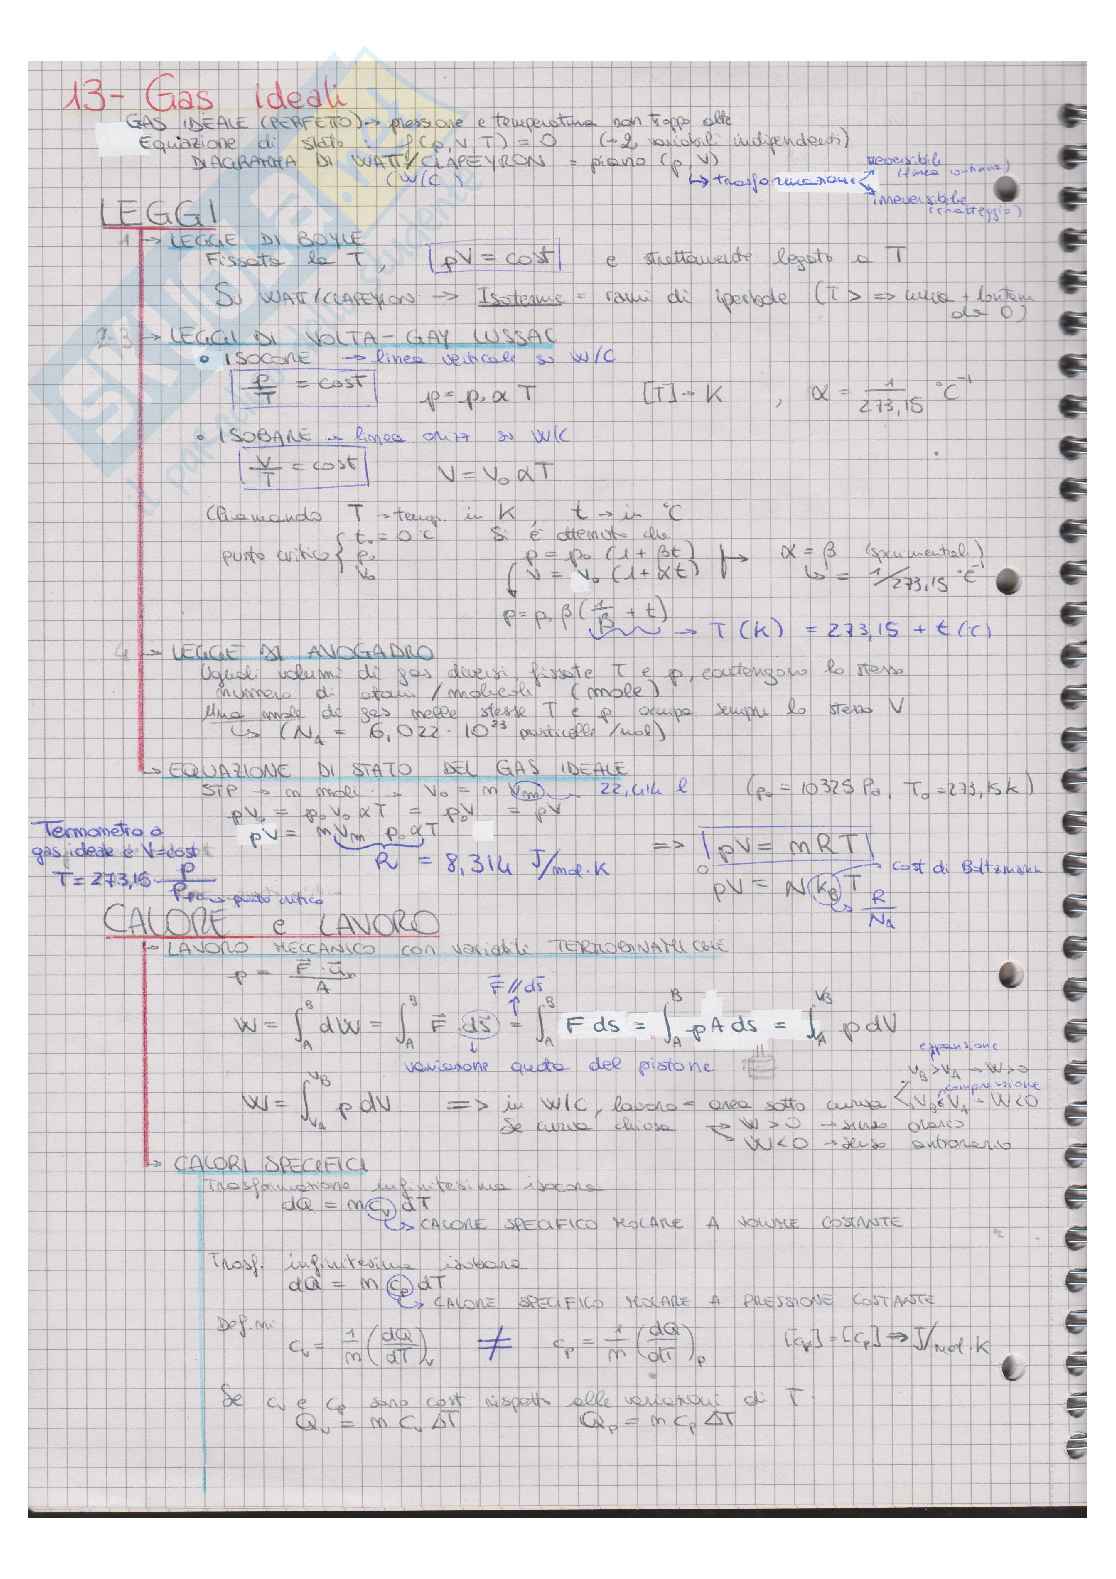 13- Gas ideali
GAS IDEALE (PERFETTO) → pressione e temperatura non troppo alte
Equazione di stato : f(p, V, T) = 0 (→ 2 variabili indipendenti)
DIAGRAMMA DI WATT/CLAPEYRON = piano (p, V)
(W/C)
↳ trasformazione
reversibile
(linea continua)
irreversibile
(tratteggio)
LEGGI
1 → LEGGE DI BOYLE
Fissata la T, pV = cost è strettamente legato a T
Su WATT/CLAPEYRON → Isoterme = rami di iperbole (T > => curva + lontana
da 0)
2-3 → LEGGI DI VOLTA - GAY LUSSAC
• ISOCORE → linea verticale su W/C
p/T = cost p = p₀ α T [T] → K , α = 1/273,15 °C⁻¹
• ISOBARE → linea orizz su W/C
V/T = cost V = V₀ α T
Chiamando T → temp. in K, t → in °C
punto critico { t₀ = 0°C Si è ottenuto che
p₀ p = p₀ (1 + βt) α = β (sperimentali)
V₀ V = V₀ (1 + αt) ↳ = 1/273,15 °C⁻¹
p = p₀ β (1/β + t) → T (K) = 273,15 + t (°C)
4 → LEGGE DI AVOGADRO
Uguali volumi di gas diversi, fissate T e p, contengono lo stesso
numero di atomi/molecole (mole)
Una mole di gas nelle stesse T e p occupa sempre lo stesso V
↳ (N_A = 6,022 · 10²³ particelle/mol)
↳ EQUAZIONE DI STATO DEL GAS IDEALE
STP → n moli → V₀ = n Vm → 22,414 l (p₀ = 10325 Pa, T₀ = 273,15 K)
pV₀ = p₀ V₀ α T = p₀V = pV
pV = n Vm p₀ α T
R = 8,314 J/mol·K => pV = nRT
Termometro a
gas ideale e V=cost
T = 273,15 · p/p → punto critico
pV = N k_B T → cost di Boltzmann
↳ R/N_A
CALORE e LAVORO
→ LAVORO MECCANICO con variabili TERMODINAMICHE
p = F⃗ · u⃗n / A
F⃗ // ds⃗
W = ∫_A^B dW = ∫_A^B F⃗ ds⃗ = ∫_A^B F ds = ∫_A^B pA ds = ∫_A^VB p dV
variazione quota del pistone
espansione
V_B > V_A → W > 0
compressione
W = ∫_VA^VB p dV => in W/C, lavoro = area sotto curva V_B < V_A → W < 0
Se curva chiusa → W > 0 → senso orario
W < 0 → senso antiorario
→ CALORI SPECIFICI
Trasformazione infinitesima isocora
dQ = n c_v dT
↳ CALORE SPECIFICO MOLARE A VOLUME COSTANTE
Trasf. infinitesima isobara
dQ = n c_p dT
↳ CALORE SPECIFICO MOLARE A PRESSIONE COSTANTE
Def.ni
c_v = 1/n (dQ/dT)_v ≠ c_p = 1/n (dQ/dT)_p [c_p] = [c_p] => J/mol·K
Se c_v e c_p sono cost rispetto alle variazioni di T.
Q_v = n c_v ΔT Q_p = n c_p ΔT